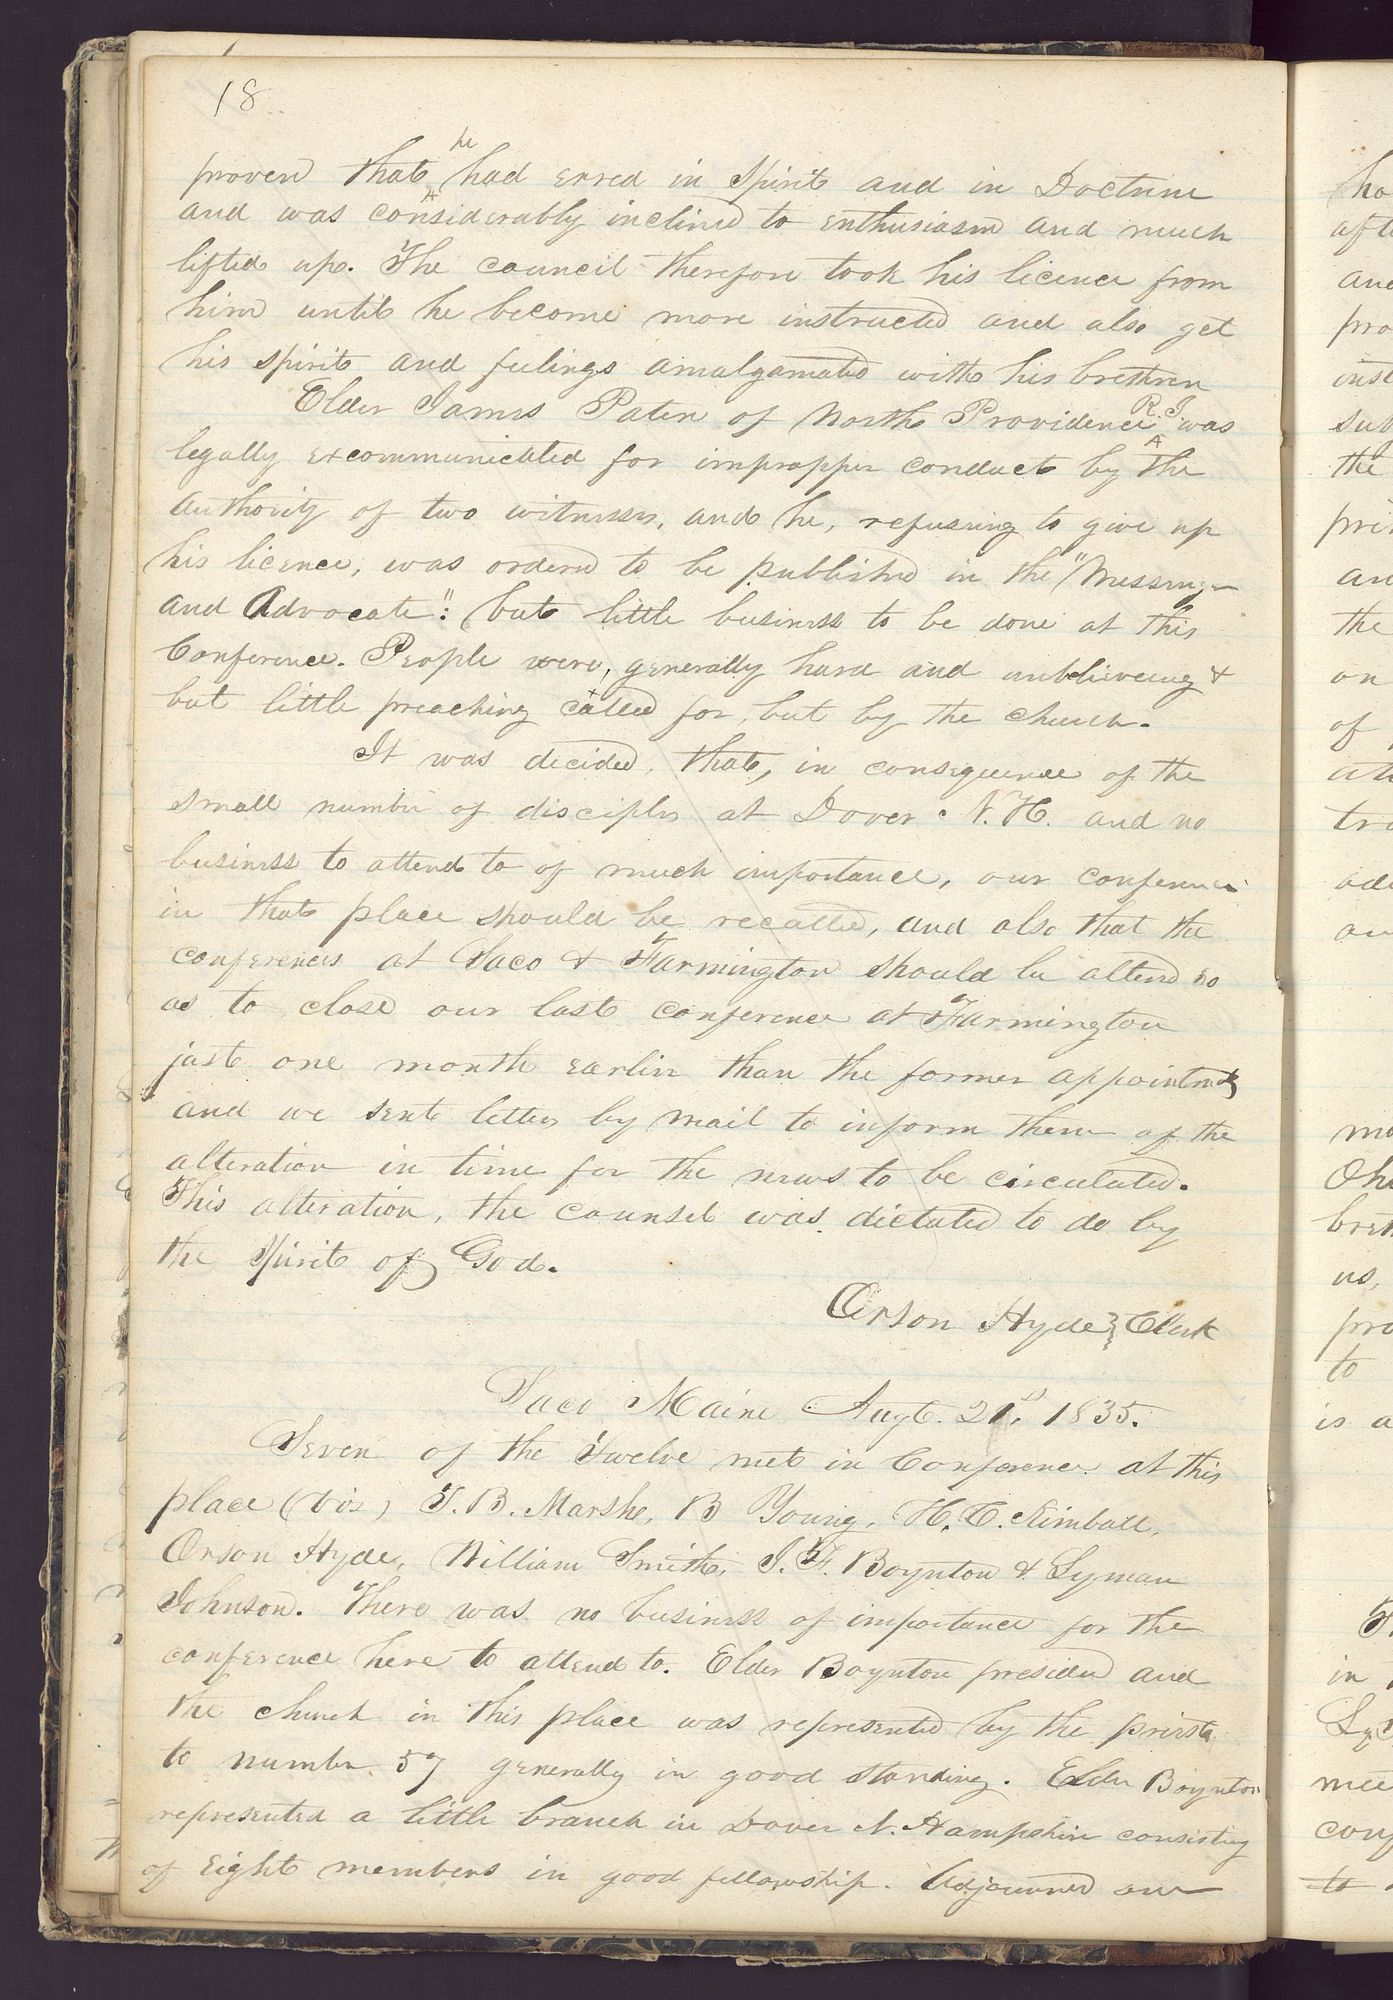 18
proven that he had erred in spirit and in Doctrine
and was considerably inclined to enthusiasm and much
lifted up. The council therefore took his licence from
him until he become more instructed and also get
his spirit and feelings amalgamated with his brethren
Elder James Paten of North Providence R.I. was
legally excommunicated for impropper conduct by the
authority of two witnesses, and he, refuseing to give up
his licence, was ordered to be published in the "Messenger
and Advocate": but little business to be done at this
Conference. People were, generally hard and unblieveing &
but little preaching called for, but by the church.
It was decided, that, in consequence of the
small number of disciples at Dover N.H. and no
business to attend to of much importance, our conference
in that place should be recalled, and also that the
conferences at Saco & Farmington should be attend so
as to close our last conference at Farmington
just one month earlier than the former appointment
and we sent letters by mail to inform them of the
alteration in time for the news to be circulated.
This alteration, the counsel was dictated to do by
the Spirit of God.
Orson Hyde} Clerk
Saco Maine Augt. 21st, 1835.
Seven of the Twelve met in Conference at this
place (viz) T. B. Marsh, B Young, H. C. Kimball,
Orson Hyde, William Smith, J. F. Boynton & Lyman
Johnson. There was no business of importance for the
conference here to attend to. Elder Boynton presided and
the church in this place was represented by the priest
to number 57 generally in good standing. Elder Boynton
represented a little branch in Dover N. Hampshire consisting
of eight members in good fellowship. Adjourned our